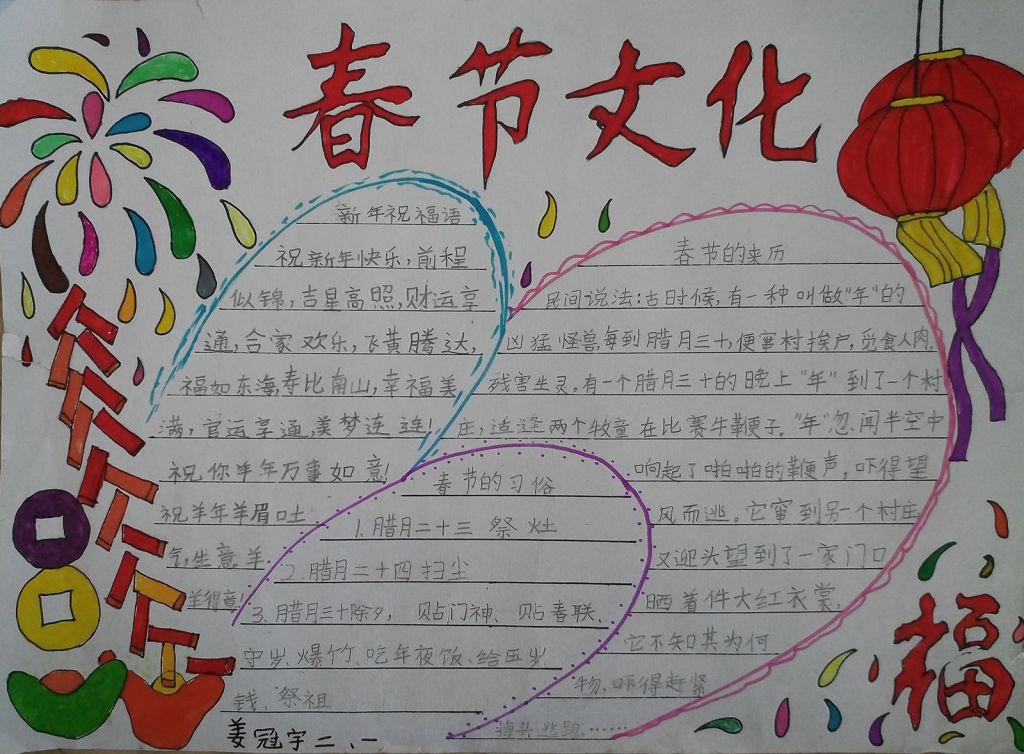 春节文化
新年祝福语
祝新年快乐,前程
似锦,吉星高照,财运享
通,合家欢乐,飞黄腾达,
福如东海,寿比南山,幸福美
满,官运享通,美梦连连!
祝你羊年万事如意!
祝羊年羊眉吐
气,生意羊
羊得意!
春节的来历
民间说法:古时候,有一种叫做"年"的
凶猛怪兽,每到腊月三十,便窜村挨户,觅食人肉,
残害生灵。有一个腊月三十的晚上"年"到了一个村
庄,适逢两个牧童在比赛牛鞭子。"年"忽闻半空中
响起了啪啪的鞭声,吓得望
风而逃。它窜到另一个村庄
又迎头望到了一家门口
晒着件大红衣裳,
它不知其为何
物,吓得赶紧
掉头逃跑……
春节的习俗
1.腊月二十三 祭灶
2.腊月二十四 扫尘
3.腊月三十除夕,贴门神、贴春联、
守岁、爆竹、吃年夜饭、给压岁
钱、祭祖
福
姜冠宇二、一